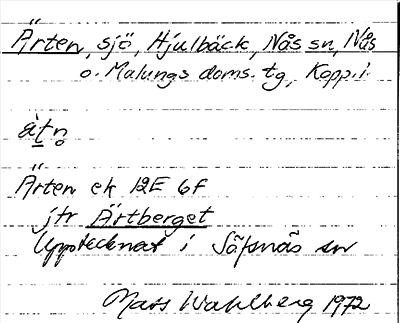 Ärten, sjö, Hjulbäck, Nås sn, Nås
o. Malungs doms. tg, Kopp. l.
ä̀tṇ
Ärten ek 12E 6f
jfr Ärtberget
Upptecknat i Säfsnäs sn
Mats Wahlberg 1972